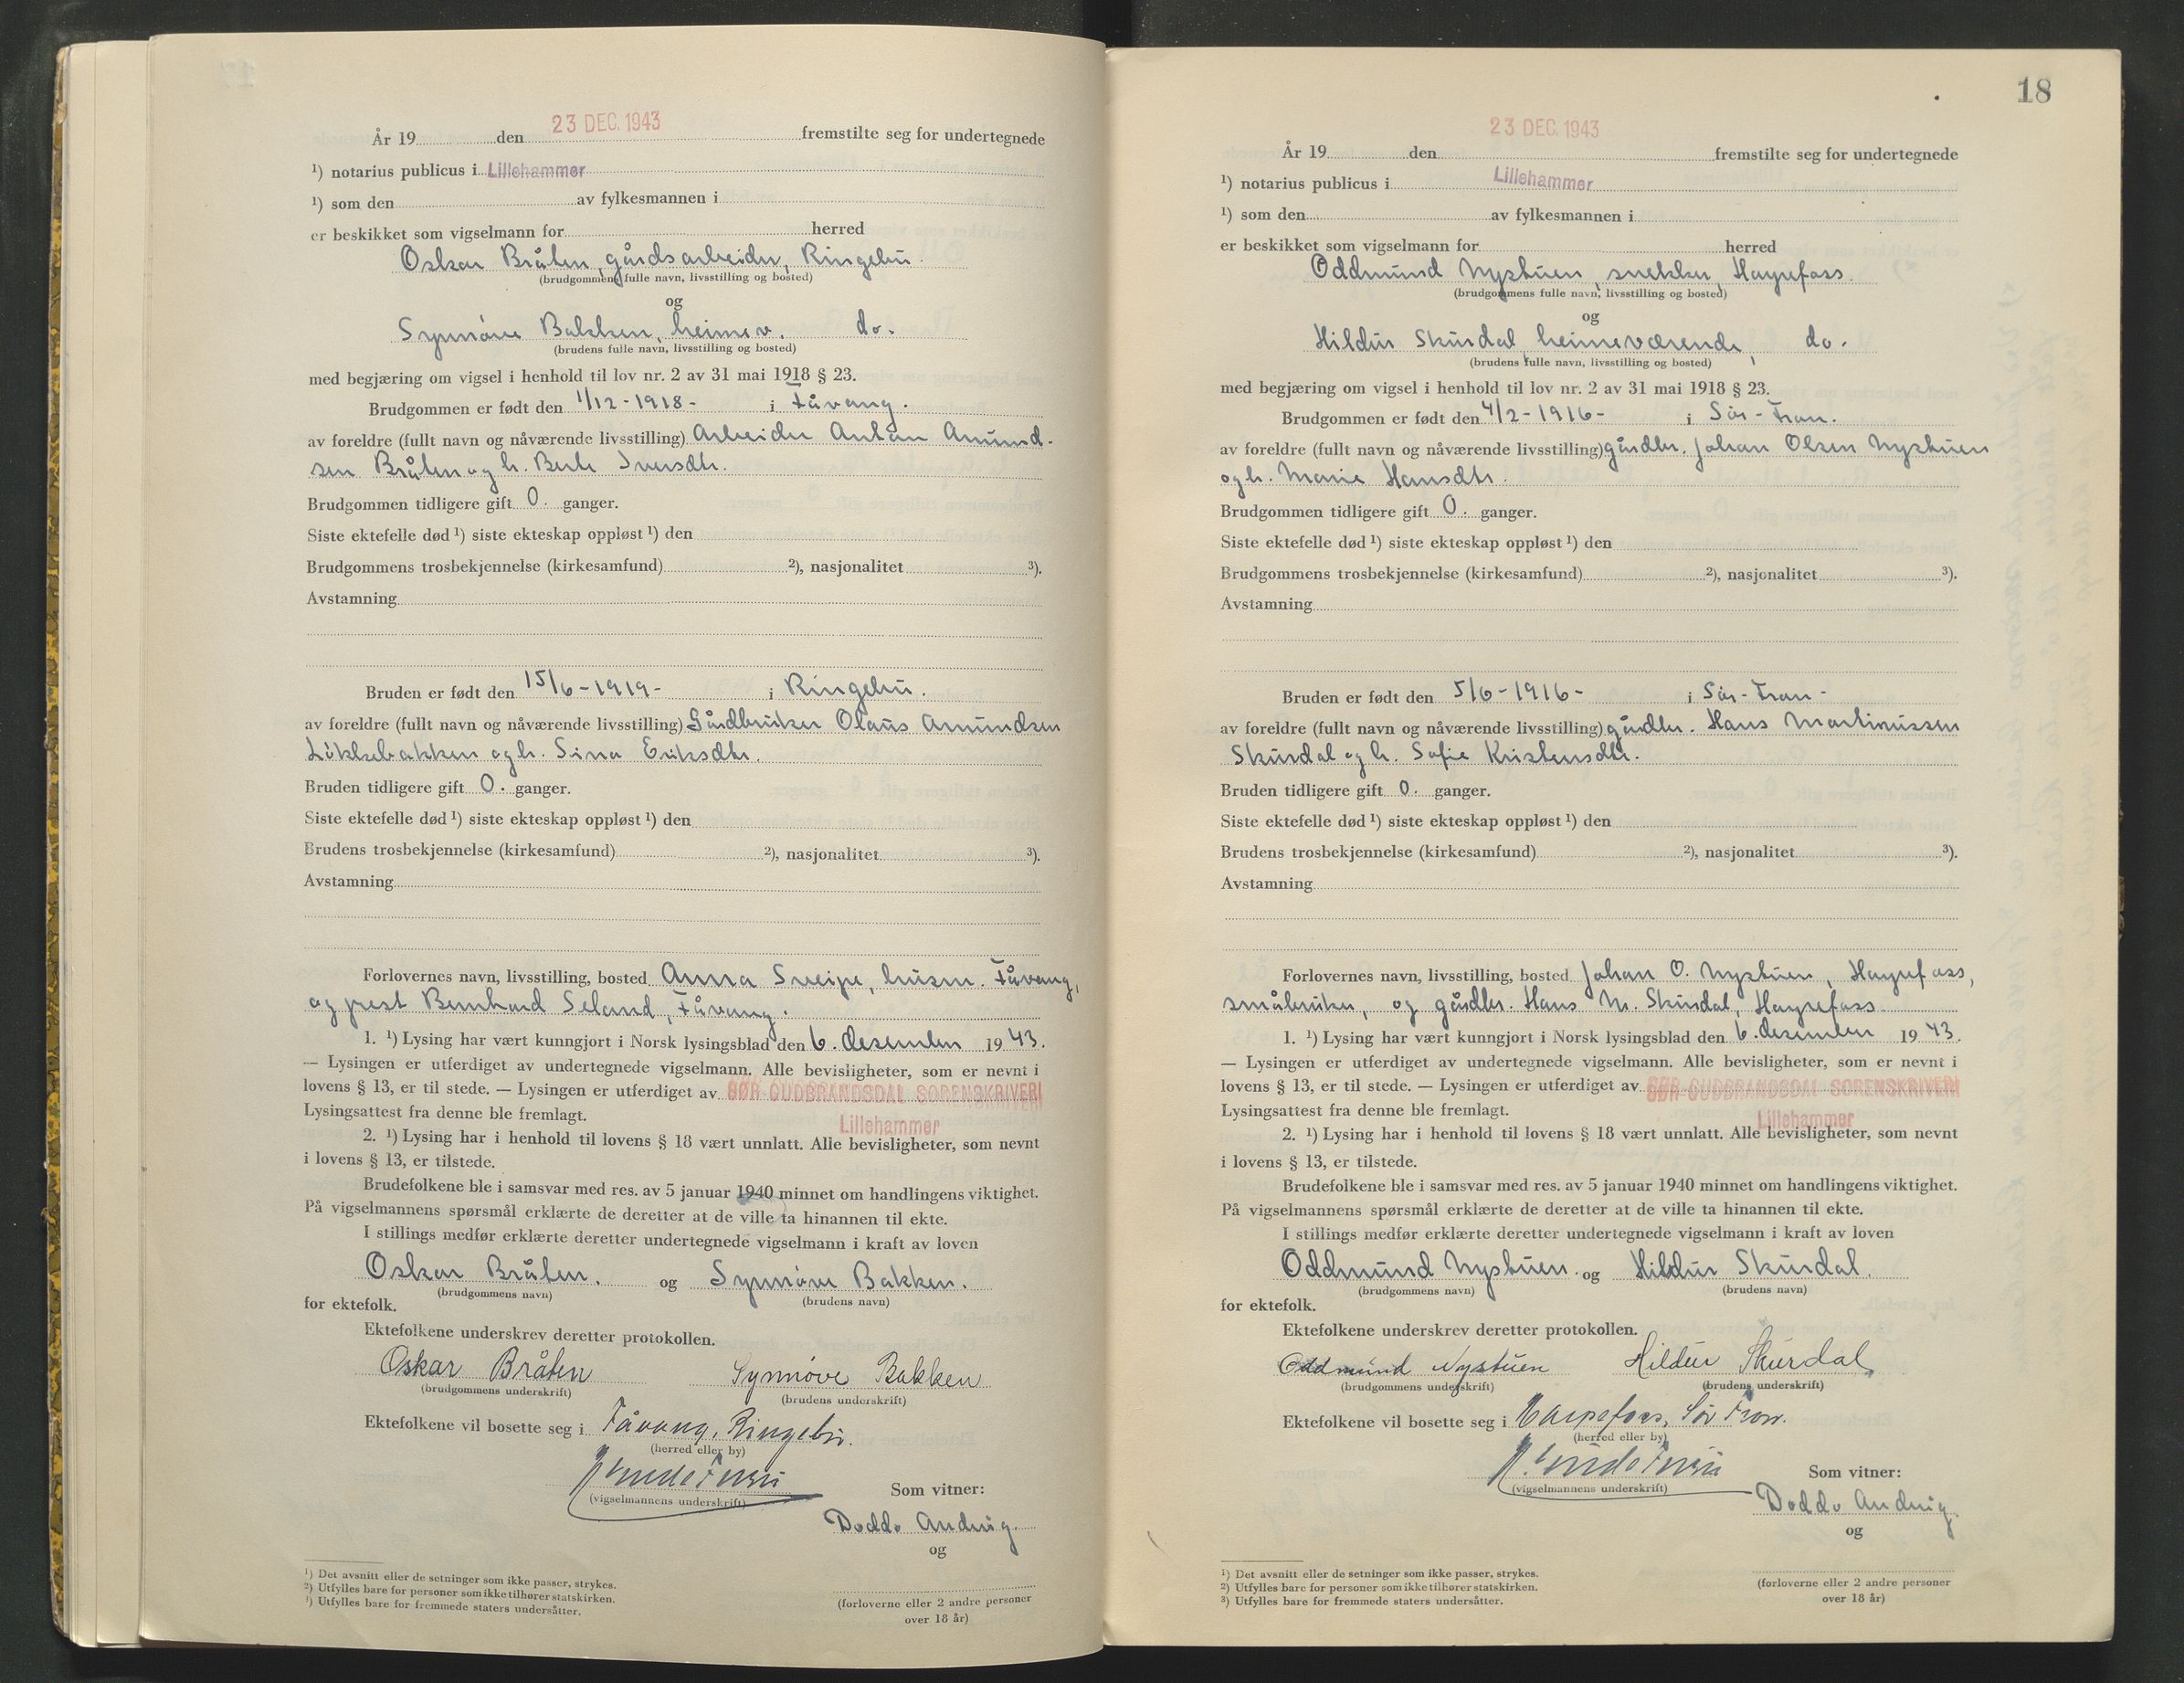 År 19 den 23 DEC. 1943 fremstilte seg for undertegnede
¹) notarius publicus i Lillehammer
¹) som den av fylkesmannen i
er beskikket som vigselmann for herred
Oskar Bråten, gårdsarbeider, Ringebu.
(brudgommens fulle navn, livsstilling og bosted)
og
Synnöve Bakken, heimev. do.
(brudens fulle navn, livsstilling og bosted)
med begjæring om vigsel i henhold til lov nr. 2 av 31 mai 1918 § 23.
Brudgommen er født den 1/12-1918- i Fåvang.
av foreldre (fullt navn og nåværende livsstilling) Arbeider Anton Amund-
sen Bråten og h. Berte Iversdtr.
Brudgommen tidligere gift 0. ganger.
Siste ektefelle død ¹) siste ekteskap oppløst ¹) den
Brudgommens trosbekjennelse (kirkesamfund) ²), nasjonalitet ³).
Avstamning
Bruden er født den 15/6-1919- i Ringebu.
av foreldre (fullt navn og nåværende livsstilling) Gårdbruker Olaus Amundsen
Lökkebakken og h. Sina Eriksdtr.
Bruden tidligere gift 0. ganger.
Siste ektefelle død ¹) siste ekteskap oppløst ¹) den
Brudens trosbekjennelse (kirkesamfund) ²), nasjonalitet ³).
Avstamning
Forlovernes navn, livsstilling, bosted Anna Sveipe, husm. Fåvang,
og prest Bernhard Seland, Fåvang.
1. ¹) Lysing har vært kunngjort i Norsk lysingsblad den 6. desember 1943.
— Lysingen er utferdiget av undertegnede vigselmann. Alle bevisligheter, som er nevnt i
lovens § 13, er til stede. — Lysingen er utferdiget av SØR-GUDBRANDSDAL SORENSKRIVERI
Lysingsattest fra denne ble fremlagt.
Lillehammer
2. ¹) Lysing har i henhold til lovens § 18 vært unnlatt. Alle bevisligheter, som nevnt
i lovens § 13, er tilstede.
Brudefolkene ble i samsvar med res. av 5 januar 1940 minnet om handlingens viktighet.
På vigselmannens spørsmål erklærte de deretter at de ville ta hinannen til ekte.
I stillings medfør erklærte deretter undertegnede vigselmann i kraft av loven
Oskar Bråten. og Synnöve Bakken.
(brudgommens navn) (brudens navn)
for ektefolk.
Ektefolkene underskrev deretter protokollen.
Oskar Bråten Synnøve Bakken
(brudgommens underskrift) (brudens underskrift)
Ektefolkene vil bosette seg i Fåvang, Ringebu.
(herred eller by)
(vigselmannens underskrift)
Som vitner:
Doddo Andvig.
og
(forloverne eller 2 andre personer
over 18 år)
¹) Det avsnitt eller de setninger som ikke passer, strykes.
²) Utfylles bare for personer som ikke tilhører statskirken.
³) Utfylles bare for fremmede staters undersåtter.
18
År 19 den 23 DEC. 1943 fremstilte seg for undertegnede
¹) notarius publicus i Lillehammer
¹) som den av fylkesmannen i
er beskikket som vigselmann for herred
Oddmund Nystuen, snekker, Harpefoss.
(brudgommens fulle navn, livsstilling og bosted)
og
Hildur Skurdal, heimeværende, do.
(brudens fulle navn, livsstilling og bosted)
med begjæring om vigsel i henhold til lov nr. 2 av 31 mai 1918 § 23.
Brudgommen er født den 4/2-1916- i Sör-Fron.
av foreldre (fullt navn og nåværende livsstilling) gårdbr. Johan Olsen Nystuen
og h. Marie Hansdtr.
Brudgommen tidligere gift 0. ganger.
Siste ektefelle død ¹) siste ekteskap oppløst ¹) den
Brudgommens trosbekjennelse (kirkesamfund) ²), nasjonalitet ³).
Avstamning
Bruden er født den 5/6-1916- i Sör-Fron-
av foreldre (fullt navn og nåværende livsstilling) gårdbr. Hans Martinussen
Skurdal og h. Sofie Kristensdtr.
Bruden tidligere gift 0. ganger.
Siste ektefelle død ¹) siste ekteskap oppløst ¹) den
Brudens trosbekjennelse (kirkesamfund) ²), nasjonalitet ³).
Avstamning
Forlovernes navn, livsstilling, bosted Johan O. Nystuen, Harpefoss,
småbruker, og gårdbr. Hans M. Skurdal, Harpefoss.
1. ¹) Lysing har vært kunngjort i Norsk lysingsblad den 6. desember 1943.
— Lysingen er utferdiget av undertegnede vigselmann. Alle bevisligheter, som er nevnt i
lovens § 13, er til stede. — Lysingen er utferdiget av SØR-GUDBRANDSDAL SORENSKRIVERI
Lysingsattest fra denne ble fremlagt.
Lillehammer
2. ¹) Lysing har i henhold til lovens § 18 vært unnlatt. Alle bevisligheter, som nevnt
i lovens § 13, er tilstede.
Brudefolkene ble i samsvar med res. av 5 januar 1940 minnet om handlingens viktighet.
På vigselmannens spørsmål erklærte de deretter at de ville ta hinannen til ekte.
I stillings medfør erklærte deretter undertegnede vigselmann i kraft av loven
Oddmund Nystuen. og Hildur Skurdal.
(brudgommens navn) (brudens navn)
for ektefolk.
Ektefolkene underskrev deretter protokollen.
Oddmund Nystuen Hildur Skurdal
(brudgommens underskrift) (brudens underskrift)
Ektefolkene vil bosette seg i Harpefoss, Sör Fron.
(herred eller by)
(vigselmannens underskrift)
Som vitner:
Doddo Andvig.
og
(forloverne eller 2 andre personer
over 18 år)
¹) Det avsnitt eller de setninger som ikke passer, strykes.
²) Utfylles bare for personer som ikke tilhører statskirken.
³) Utfylles bare for fremmede staters undersåtter.